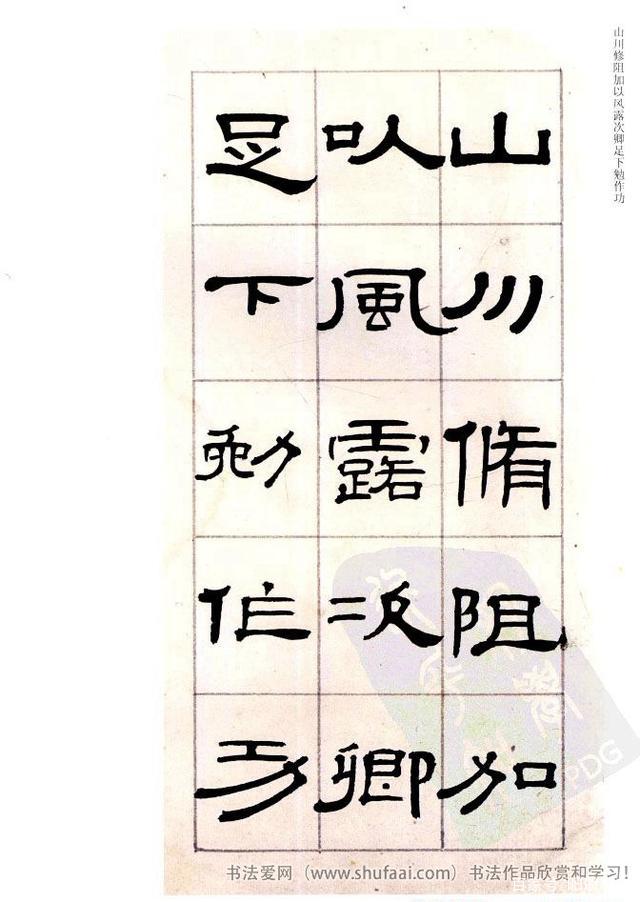 山川修阻加以风露次卿足下勉作功
山川脩阻加
以風露次卿
足下勉作功
PDG
书法爱网（www.shufaai.com）书法作品欣赏和学习！